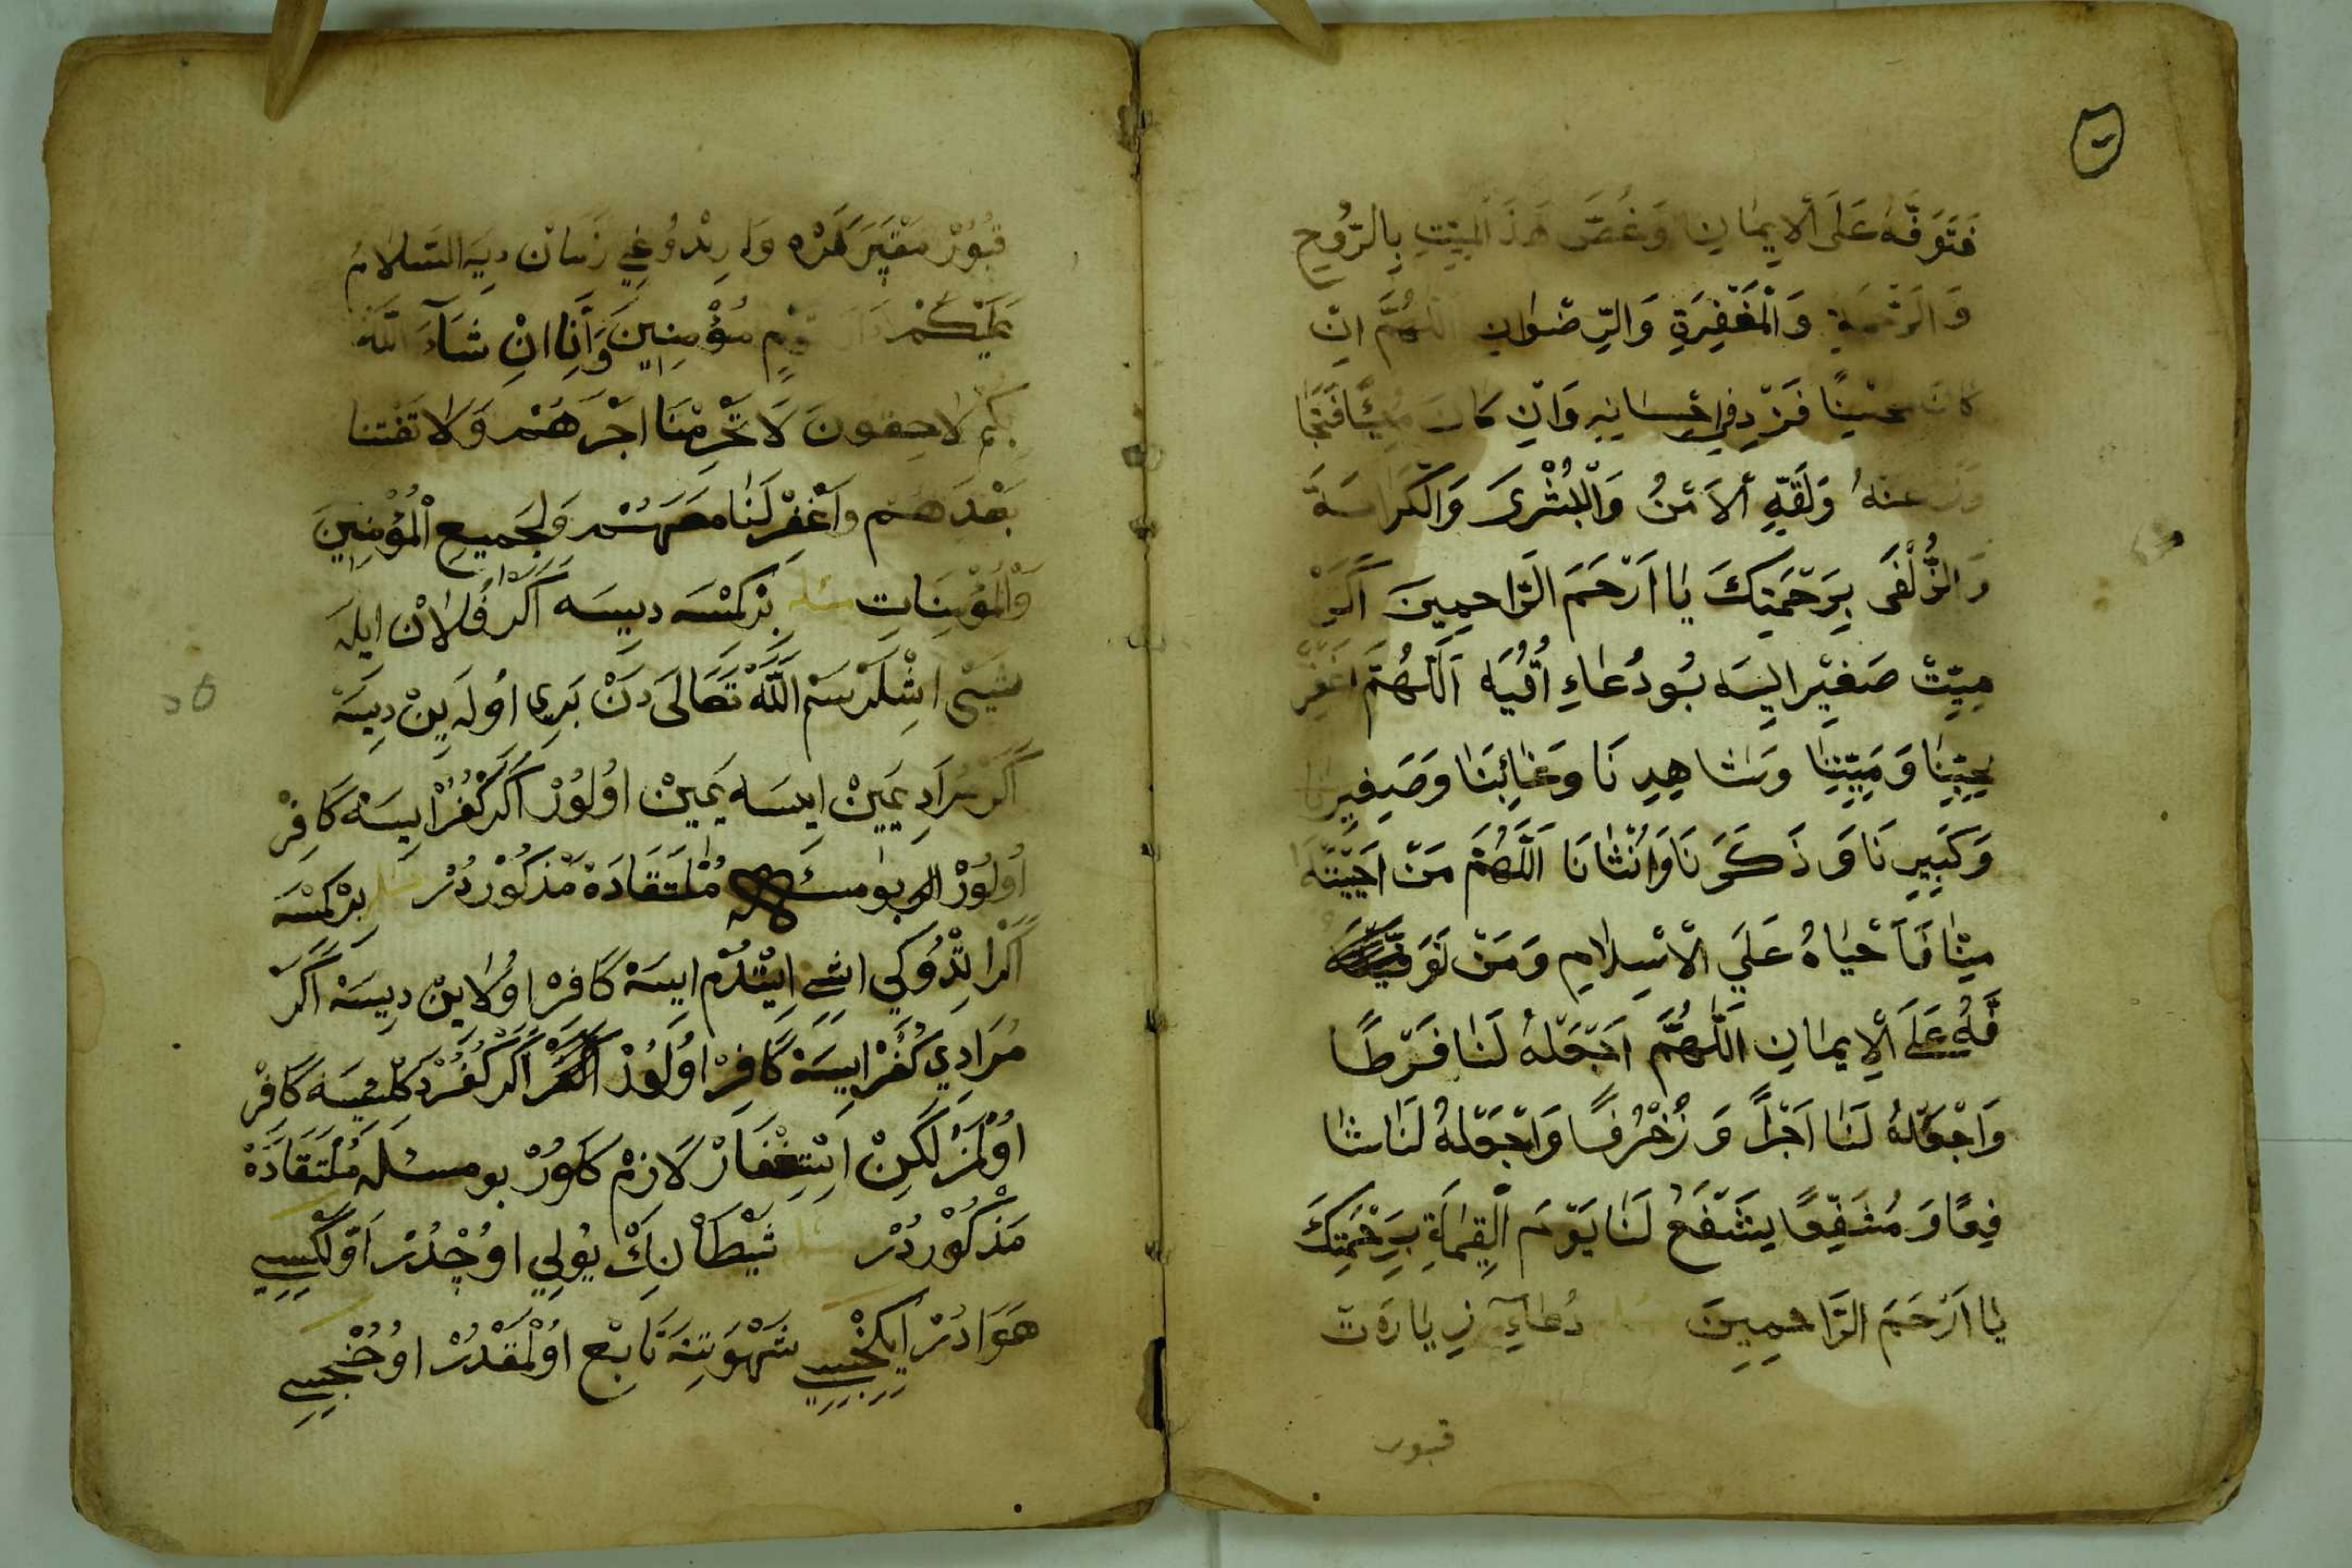 فَتَوَفَّهُ عَلَى الْاِيمَانِ وَخُصَّ هَذَا الْمَيِّتِ بِالرَّوْحِ
وَالرَّحْمَةِ وَالْمَغْفِرَةِ وَالرِّضْوَانِ اللَّهُمَّ اِنْ
كَانَ مُحْسِنًا فَزِدْ فِي اِحْسَانِهِ وَاِنْ كَانَ
عَنْهُ وَلَقِّهِ الْاَمْنَ وَالْبُشْرَى وَالْكَرَامَةَ
وَالزُّلْفَى بِرَحْمَتِكَ يَا اَرْحَمَ الرَّاحِمِينَ اَكَرْ
مِيِّتْ صَغِيْر اِيسَه بُو دُعَاءِ اُقُيَه اَللَّهُمَّ اغْفِرْ
لِحَيِّنَا وَمَيِّتِنَا وَشَاهِدِنَا وَغَائِبِنَا وَصَغِيرِنَا
وَكَبِيرِنَا وَذَكَرِنَا وَاُنْثَانَا اَللَّهُمَّ مَنْ اَحْيَيْتَهُ
مِنَّا فَاَحْيَاهُ عَلَي الْاِسْلَامِ وَمَنْ
فَّهُ عَلَى الْاِيمَانِ اَللَّهُمَّ اجْعَلْهُ لَنَا فَرَطًا
وَاجْعَلْهُ لَنَا اَجْرًا وَ زُخْرُفًا وَاجْعَلْهُ لَنَا شَا
فِعًا وَ مُشَفَّعًا يَشْفَعُ لَنَا يَوْمَ الْقِيَامَةِ بِرَحْمَتِكَ
يَا اَرْحَمَ الرَّاحِمِينَ دُعَاءِ زِيَارَت
قبور
قُبُورْ مَقْبَرَلَرْه وَارِلْدُوغِي زَمَانْ دِيَه السَّلَامُ
عَلَيْكُمْ دَارَ قَوْمٍ مُؤْمِنِينَ وَاَنَا اِنْ شَآءَ اللَّهُ
بِكُمْ لَاحِقُونَ لَا تَحْرِمْنَا اَجْرَهُمْ وَلَا تَفْتِنَا
بَعْدَهُمْ وَاغْفِرْ لَنَا مَعَهُمْ وَلِجَمِيعِ الْمُؤْمِنِينَ
وَالْمُؤْمِنَاتِ مسئله بَرْ كِمْسَه دِيسَه اَكَرْ فُلَانْ ايله
شَيْيْ اِشْلَرْسَمْ اللَّه تَعَالَى دَنْ بَرِي اُولَه يِنْ دِيسَه
اَكَرْ مُرَادِ يَمِينْ اِيسَه يَمِينْ اوُلُورْ اَكَرْ كُفُرْ اِيسَه كَافِرْ
اُولُورْ بو مسئله مُلْتَقَادَه مَذْكُورْدُرْ مسئله بَرْ كِمْسَه
اِيتْدُمْ اِيسَه كَافِرْ اوُلَايِنْ دِيسَه اَكَرْ
مُرَادِي كُفُرْ اِيسَه كَافِرْ اوُلُورْ اَكَرْ كُفُرْ دَكِلْ اِيسَه كَافِرْ
اوُلْمَزْ لَكِنْ اِسْتِغْفَارْ لَازِمْ كَلُورْ بو مسئله مُلْتَقَادَه
مَذْكُورْدُرْ مسئله شَيْطَانِكْ يُولِي اوُچْدُرْ اَوَّلْكِيسِي
هَوَادُرْ اِيكِنْجِيسِي شَهْوَتِنَه تَابِعْ اوُلْمَقْدُرْ اوُچُنْجِيسِي